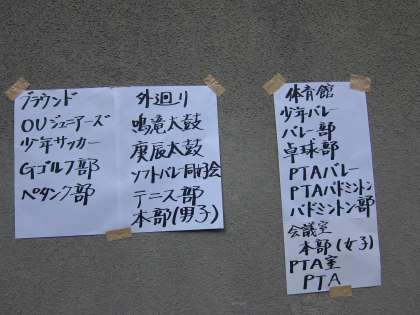 グラウンド
OUジュニアーズ
少年サッカー
Gゴルフ部
ペタンク部
外廻り
鳴竜太鼓
庚辰太鼓
ソフトバレー同好会
テニス部
本部(男子)
体育館
少年バレー
バレー部
卓球部
PTAバレー
PTAバドミントン
バドミントン部
会議室
本部(女子)
PTA室
PTA